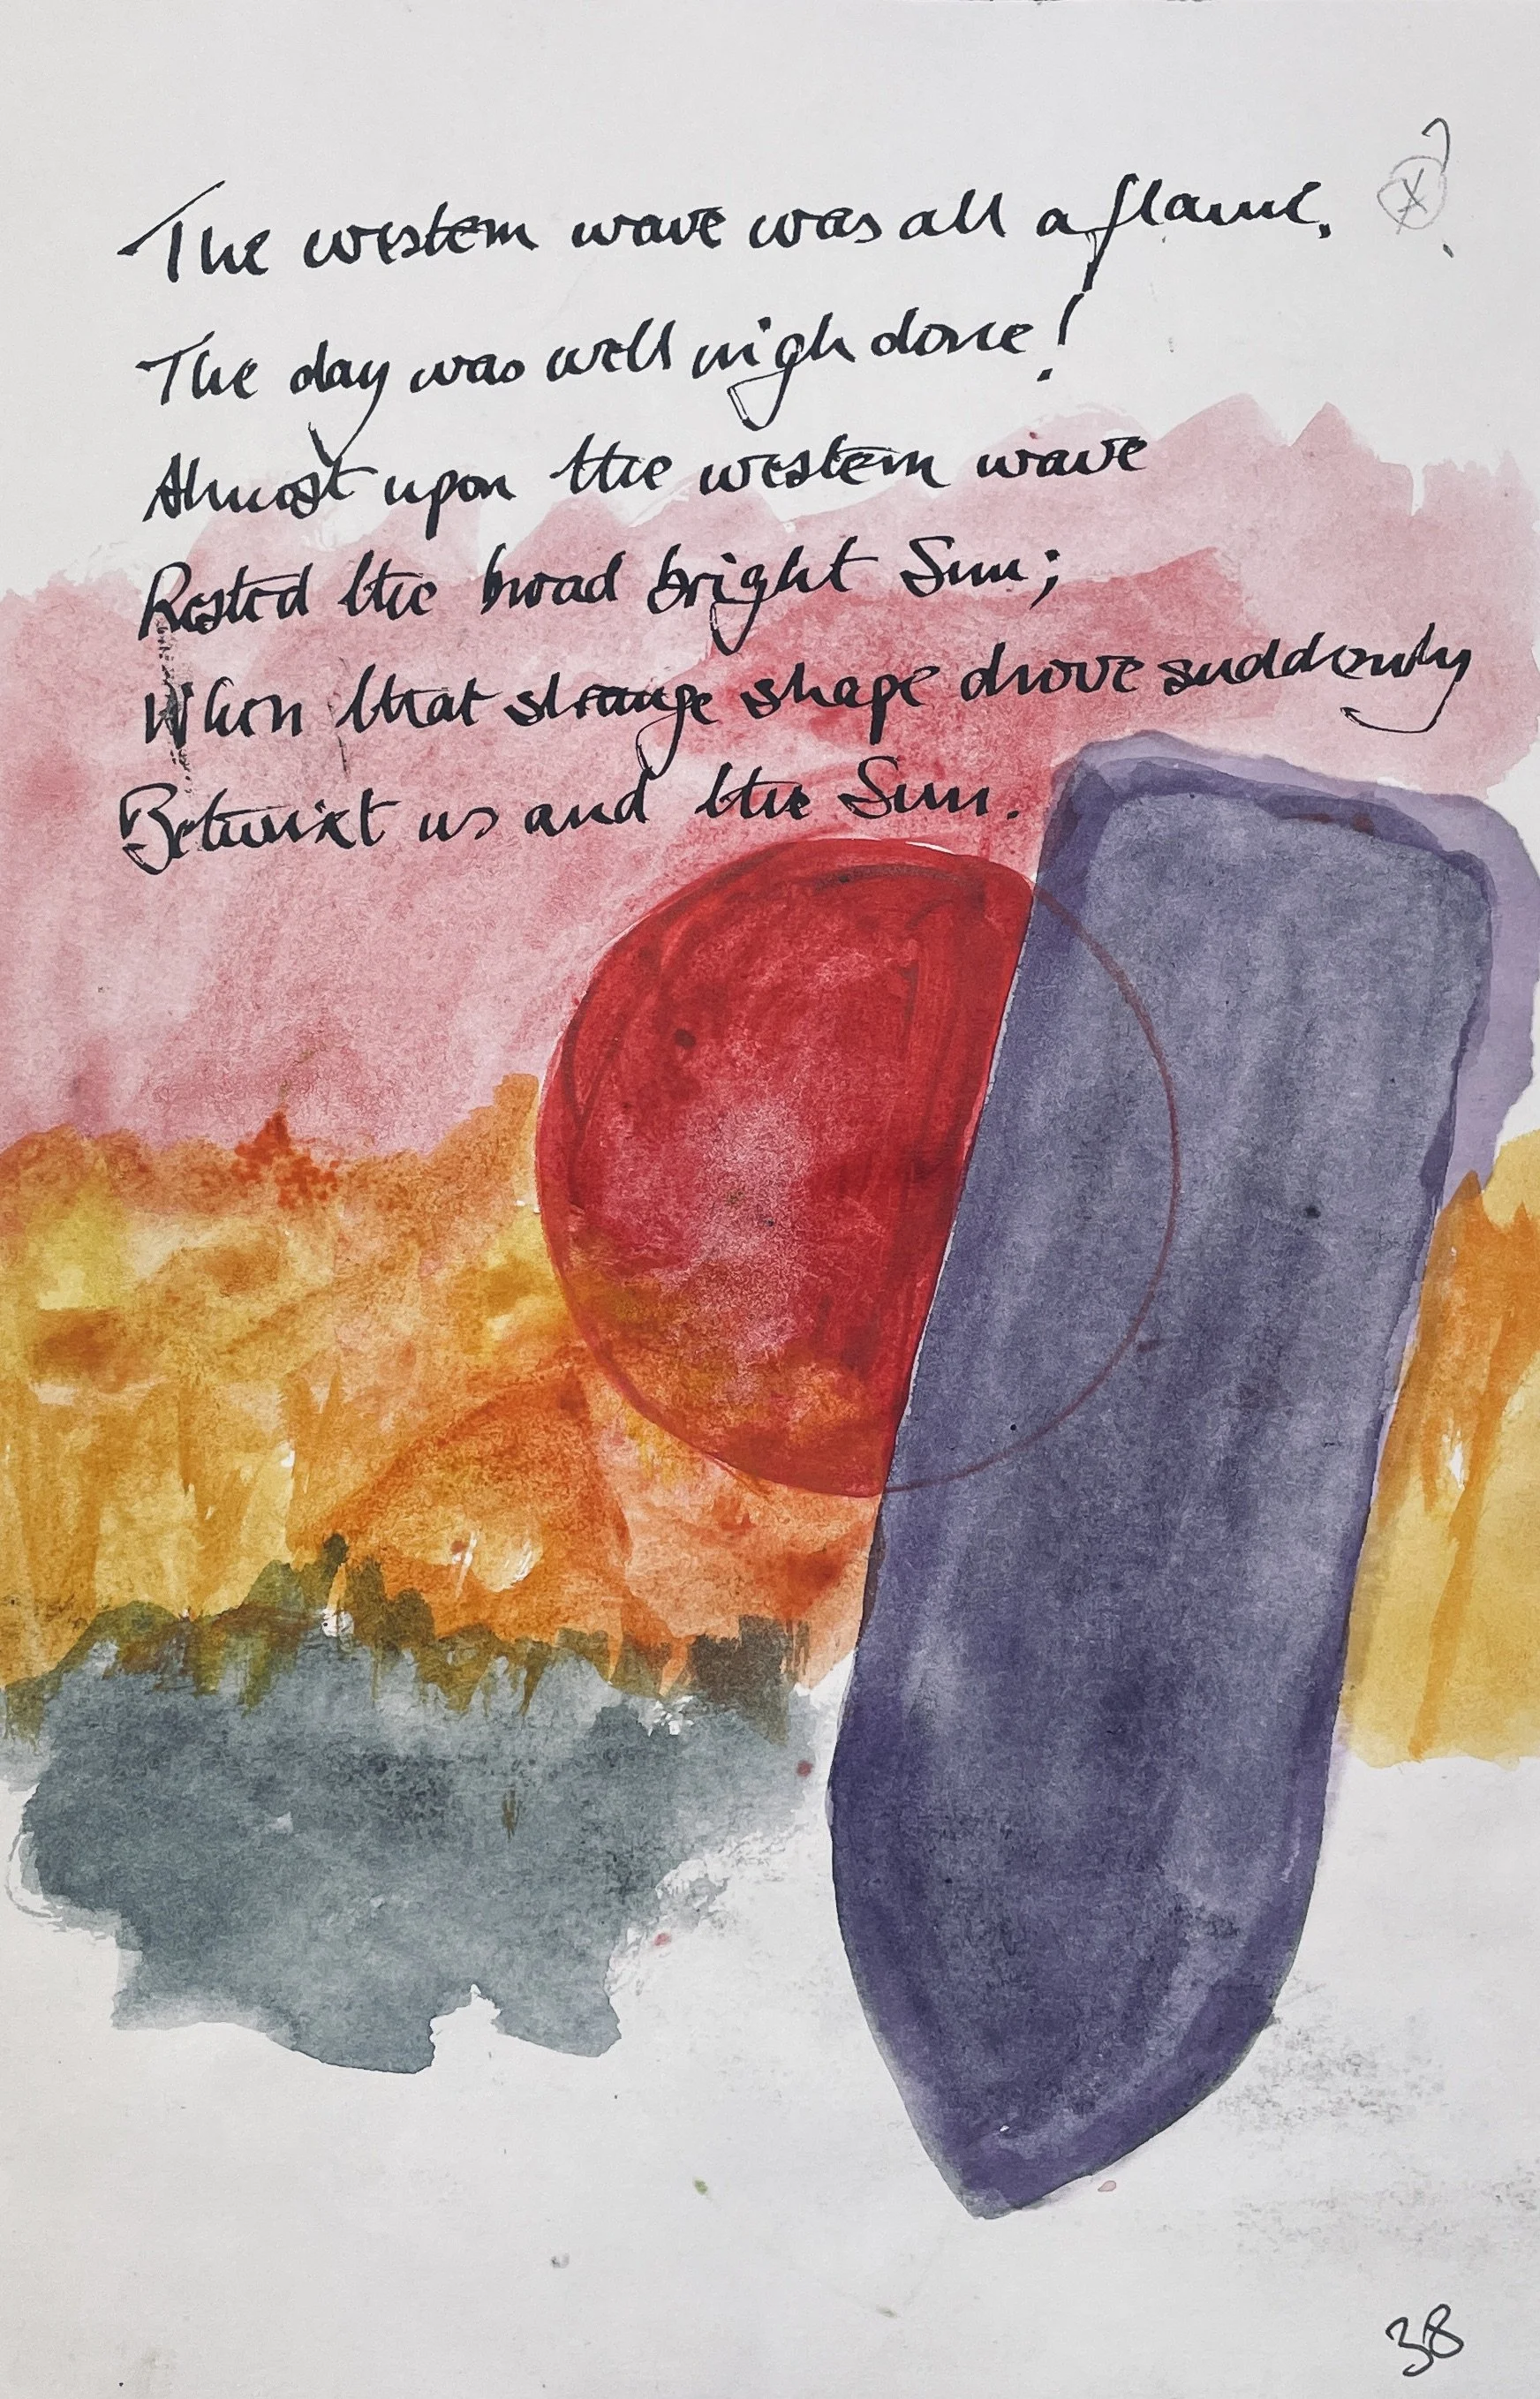 The western wave was all a flame.
The day was well nigh done!
Almost upon the western wave
Rested the broad bright Sun;
When that strange shape drove suddenly
Betwixt us and the Sun.
38